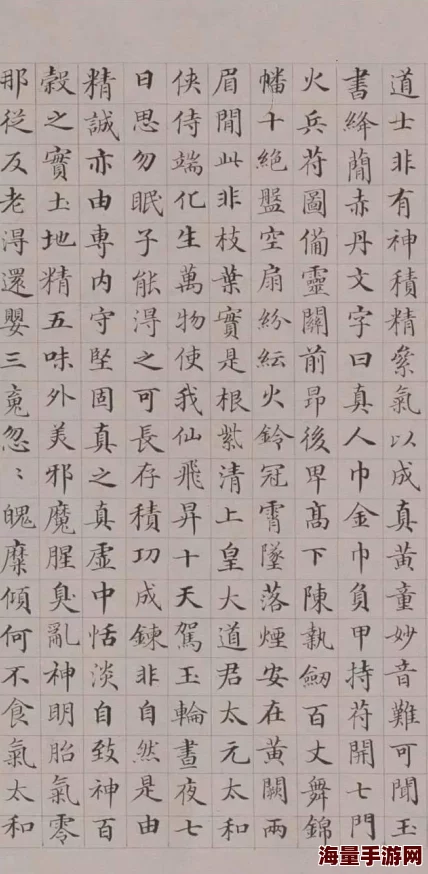 道士非有神積精絫氣以成真黃童妙音難可聞玉
書絳蕳赤丹文字曰真人巾金巾負甲持苻開七門
火兵苻圖俻靈關前昂後卑髙下陳執劒百丈舞錦
幡十絕盤空扇紛紜火鈴冠霄墜落煙安在黃闕兩
眉閒此非枝葉實是根紫清上皇大道君太元太和
俠侍端化生萬物使我仙飛昇十天駕玉輪晝夜七
日思勿眠子能淂之可長存積功成鍊非自然是由
精誠亦由專內守堅固真之真虛中恬淡自致神百
穀之實土地精五味外美邪魔腥臭亂神明胎氣零
那從反老淂還嬰三䰟忽〻魄糜傾何不食氣太和
海量手游网